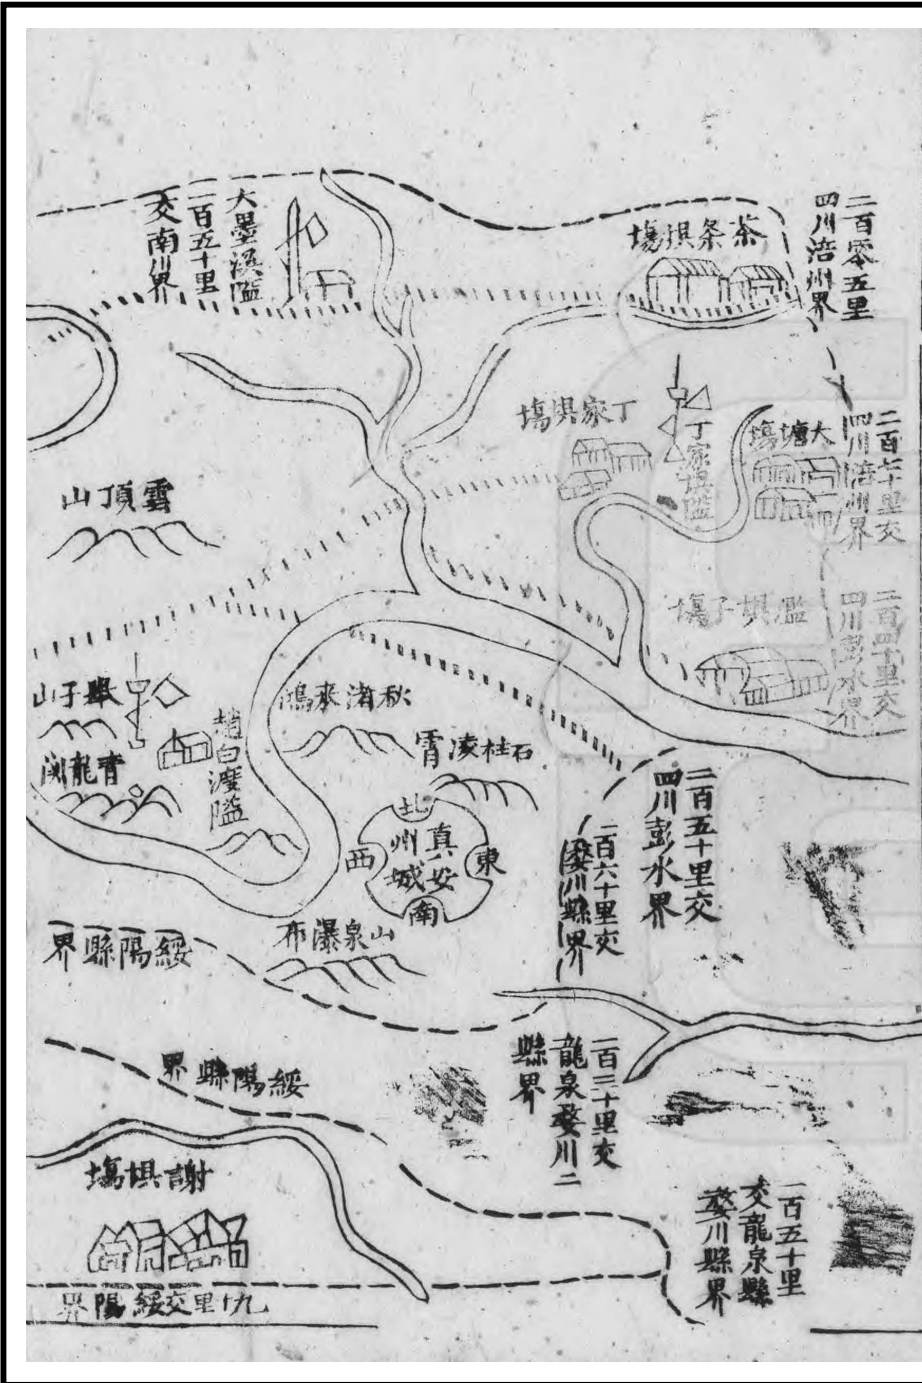 二百零五里
四川涪州界
茶条垻塲
大墨溪隘
一百五十里
交南川界
二百七十里交
四川涪州界
大塘塲
丁家垻隘
丁家垻塲
雲頂山
二百四十里交
四川彭水界
濫垻子塲
秋渚來鴻
石柱凌霄
趙白渡隘
山子
青龍洞
二百五十里交
四川彭水界
一百六十里交
婺川縣界
真安
州城
北
東
南
西
山泉瀑布
綏陽縣界
一百三十里交
龍泉婺川二
縣界
綏陽縣界
謝垻塲
一百五十里
交龍泉縣
婺川縣界
九十里交綏陽界